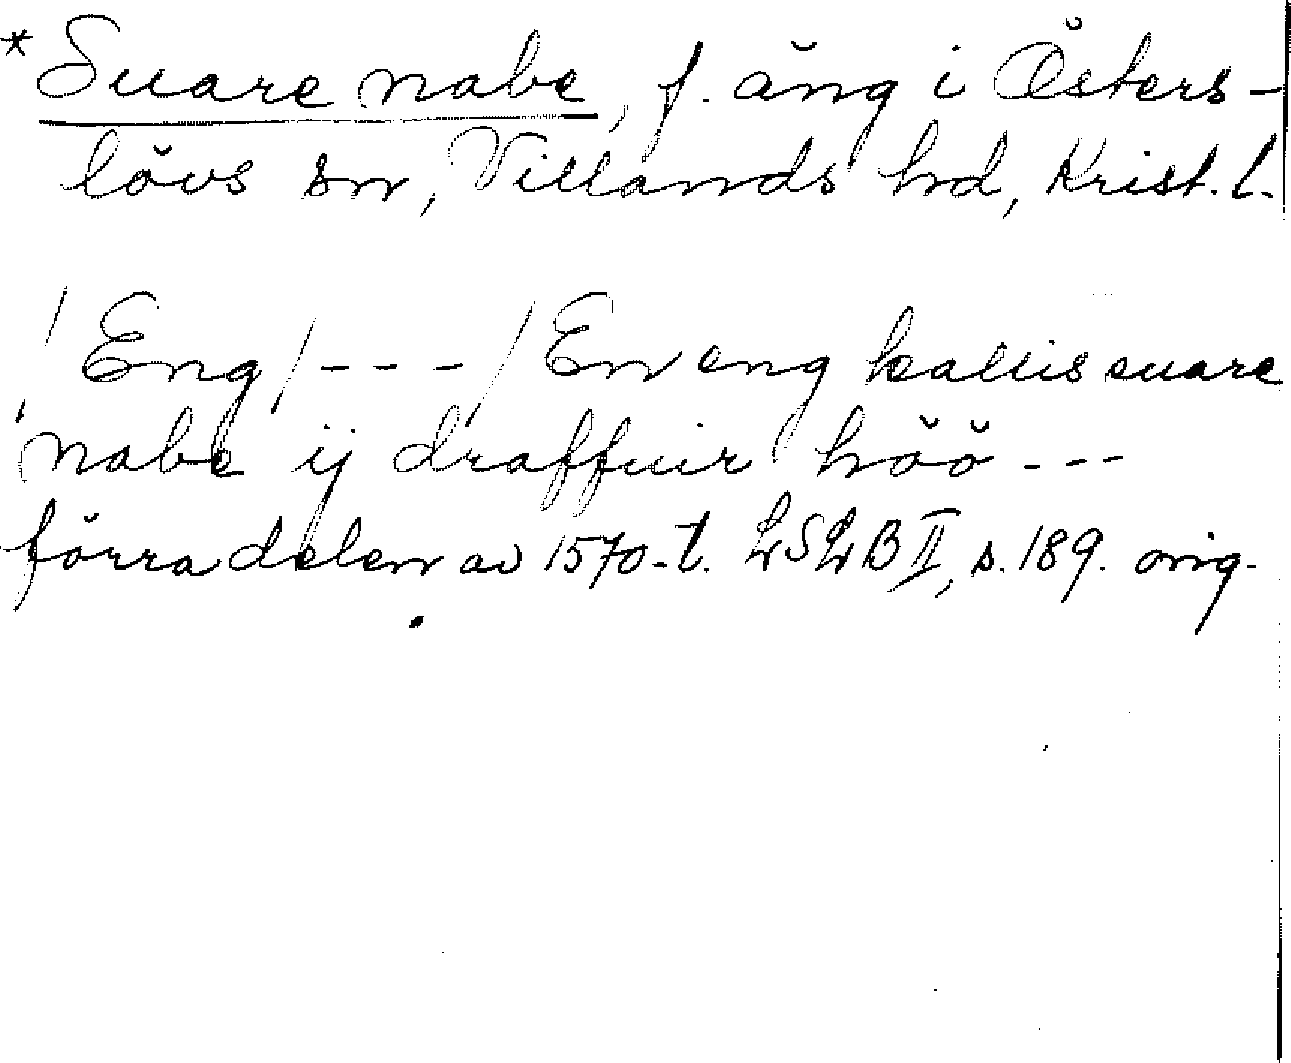 * Suare nabe, f. äng i Östers-
lövs sn, Villands hd, Krist. l.
/Eng/ - - - / En eng kallis suare
nabe ij draffuir höö - - -
förra delen av 1570-t. LSLB II, s. 189. orig.